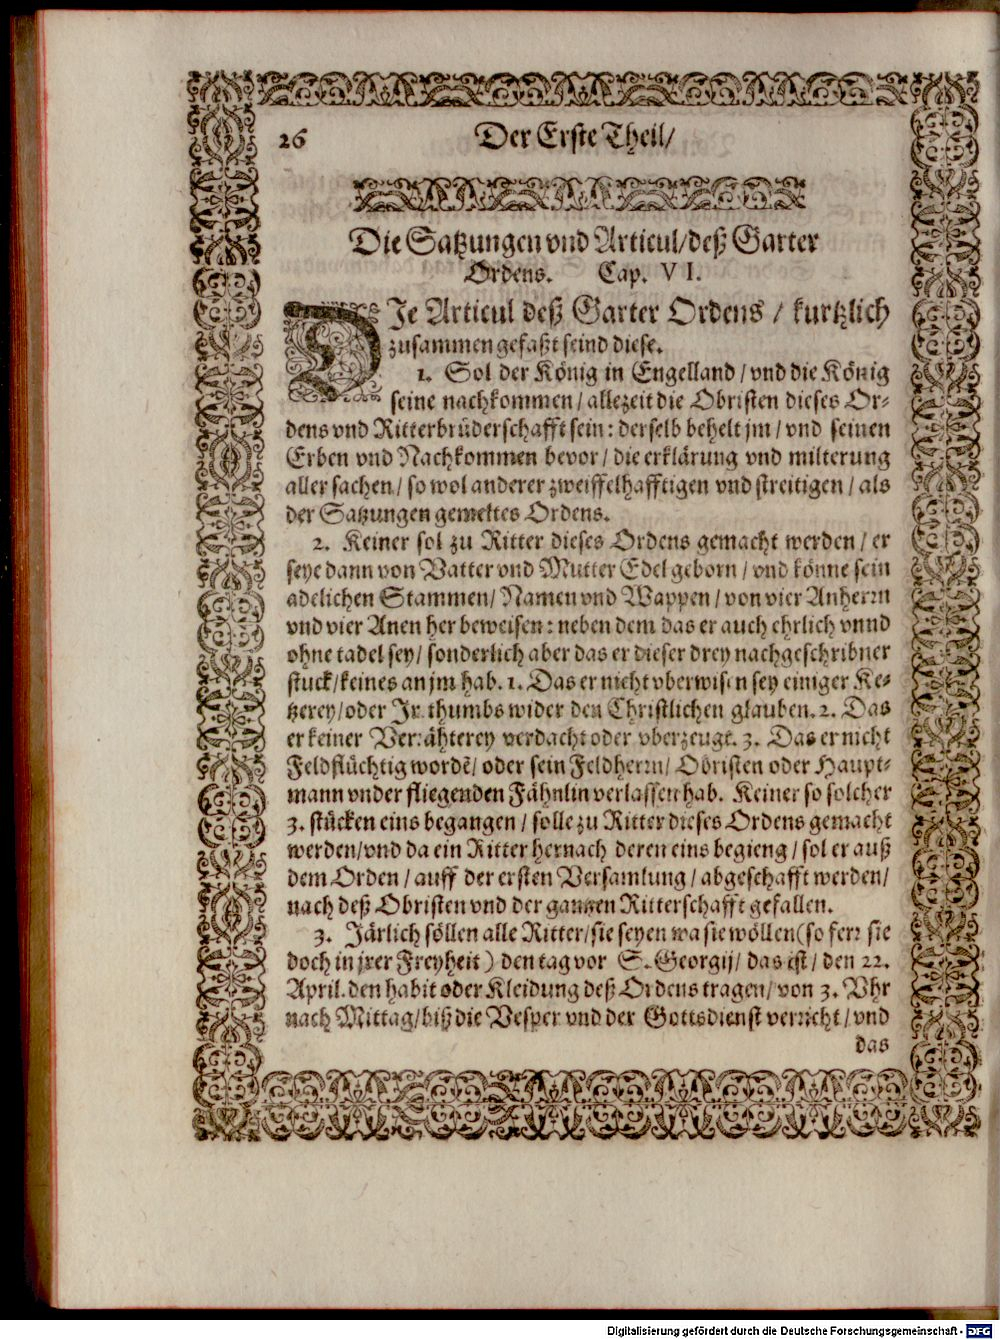 26 Der Erste Theil/
Die Satzungen vnd Articul/ deß Garter
Ordens. Cap. VI.
DJe Articul deß Garter Ordens / kurtzlich
zusammen gefaßt seind diese.
1. Sol der König in Engelland / vnd die König
seine nachkommen / allezeit die Obristen dieses Or-
dens vnd Ritterbrüderschafft sein: derselb behelt jm / vnd seinen
Erben vnd Nachkommen bevor / die erklärung vnd milterung
aller sachen / so wol anderer zweiffelhafftigen vnd streitigen / als
der Satzungen gemeltes Ordens.
2. Keiner sol zu Ritter dieses Ordens gemacht werden / er
seye dann von Vatter vnd Mutter Edel geborn / vnd könne sein
adelichen Stammen/ Namen vnd Wappen / von vier Anherrn
vnd vier Anen her beweisen: neben dem das er auch ehrlich vnnd
ohne tadel sey/ sonderlich aber das er dieser drey nachgeschribner
stuck/ keines an jm hab. 1. Das er nicht vberwisen sey einiger Ke-
tzerey/ oder Jrrthumbs wider den Christlichen glauben. 2. Das
er keiner Verrähterey verdacht oder vberzeugt. 3. Das er nicht
Feldflüchtig wordẽ/ oder sein Feldherrn/ Obristen oder Haupt-
mann vnder fliegenden Fähnlin verlassen hab. Keiner so solcher
3. stücken eins begangen / solle zu Ritter dieses Ordens gemacht
werden/ vnd da ein Ritter hernach deren eins begieng / sol er auß
dem Orden / auff der ersten Versamlung / abgeschafft werden/
nach deß Obristen vnd der gantzen Ritterschafft gefallen.
3. Järlich söllen alle Ritter/ sie seyen wa sie wöllen (so ferr sie
doch in jrer Freyheit) den tag vor S. Georgij/ das ist/ den 22.
April. den habit oder Kleidung deß Ordens tragen/ von 3. Vhr
nach Mittag/ biß die Vesper vnd der Gottsdienst verricht/ vnd
das
Digitalisierung gefördert durch die Deutsche Forschungsgemeinschaft - DFG